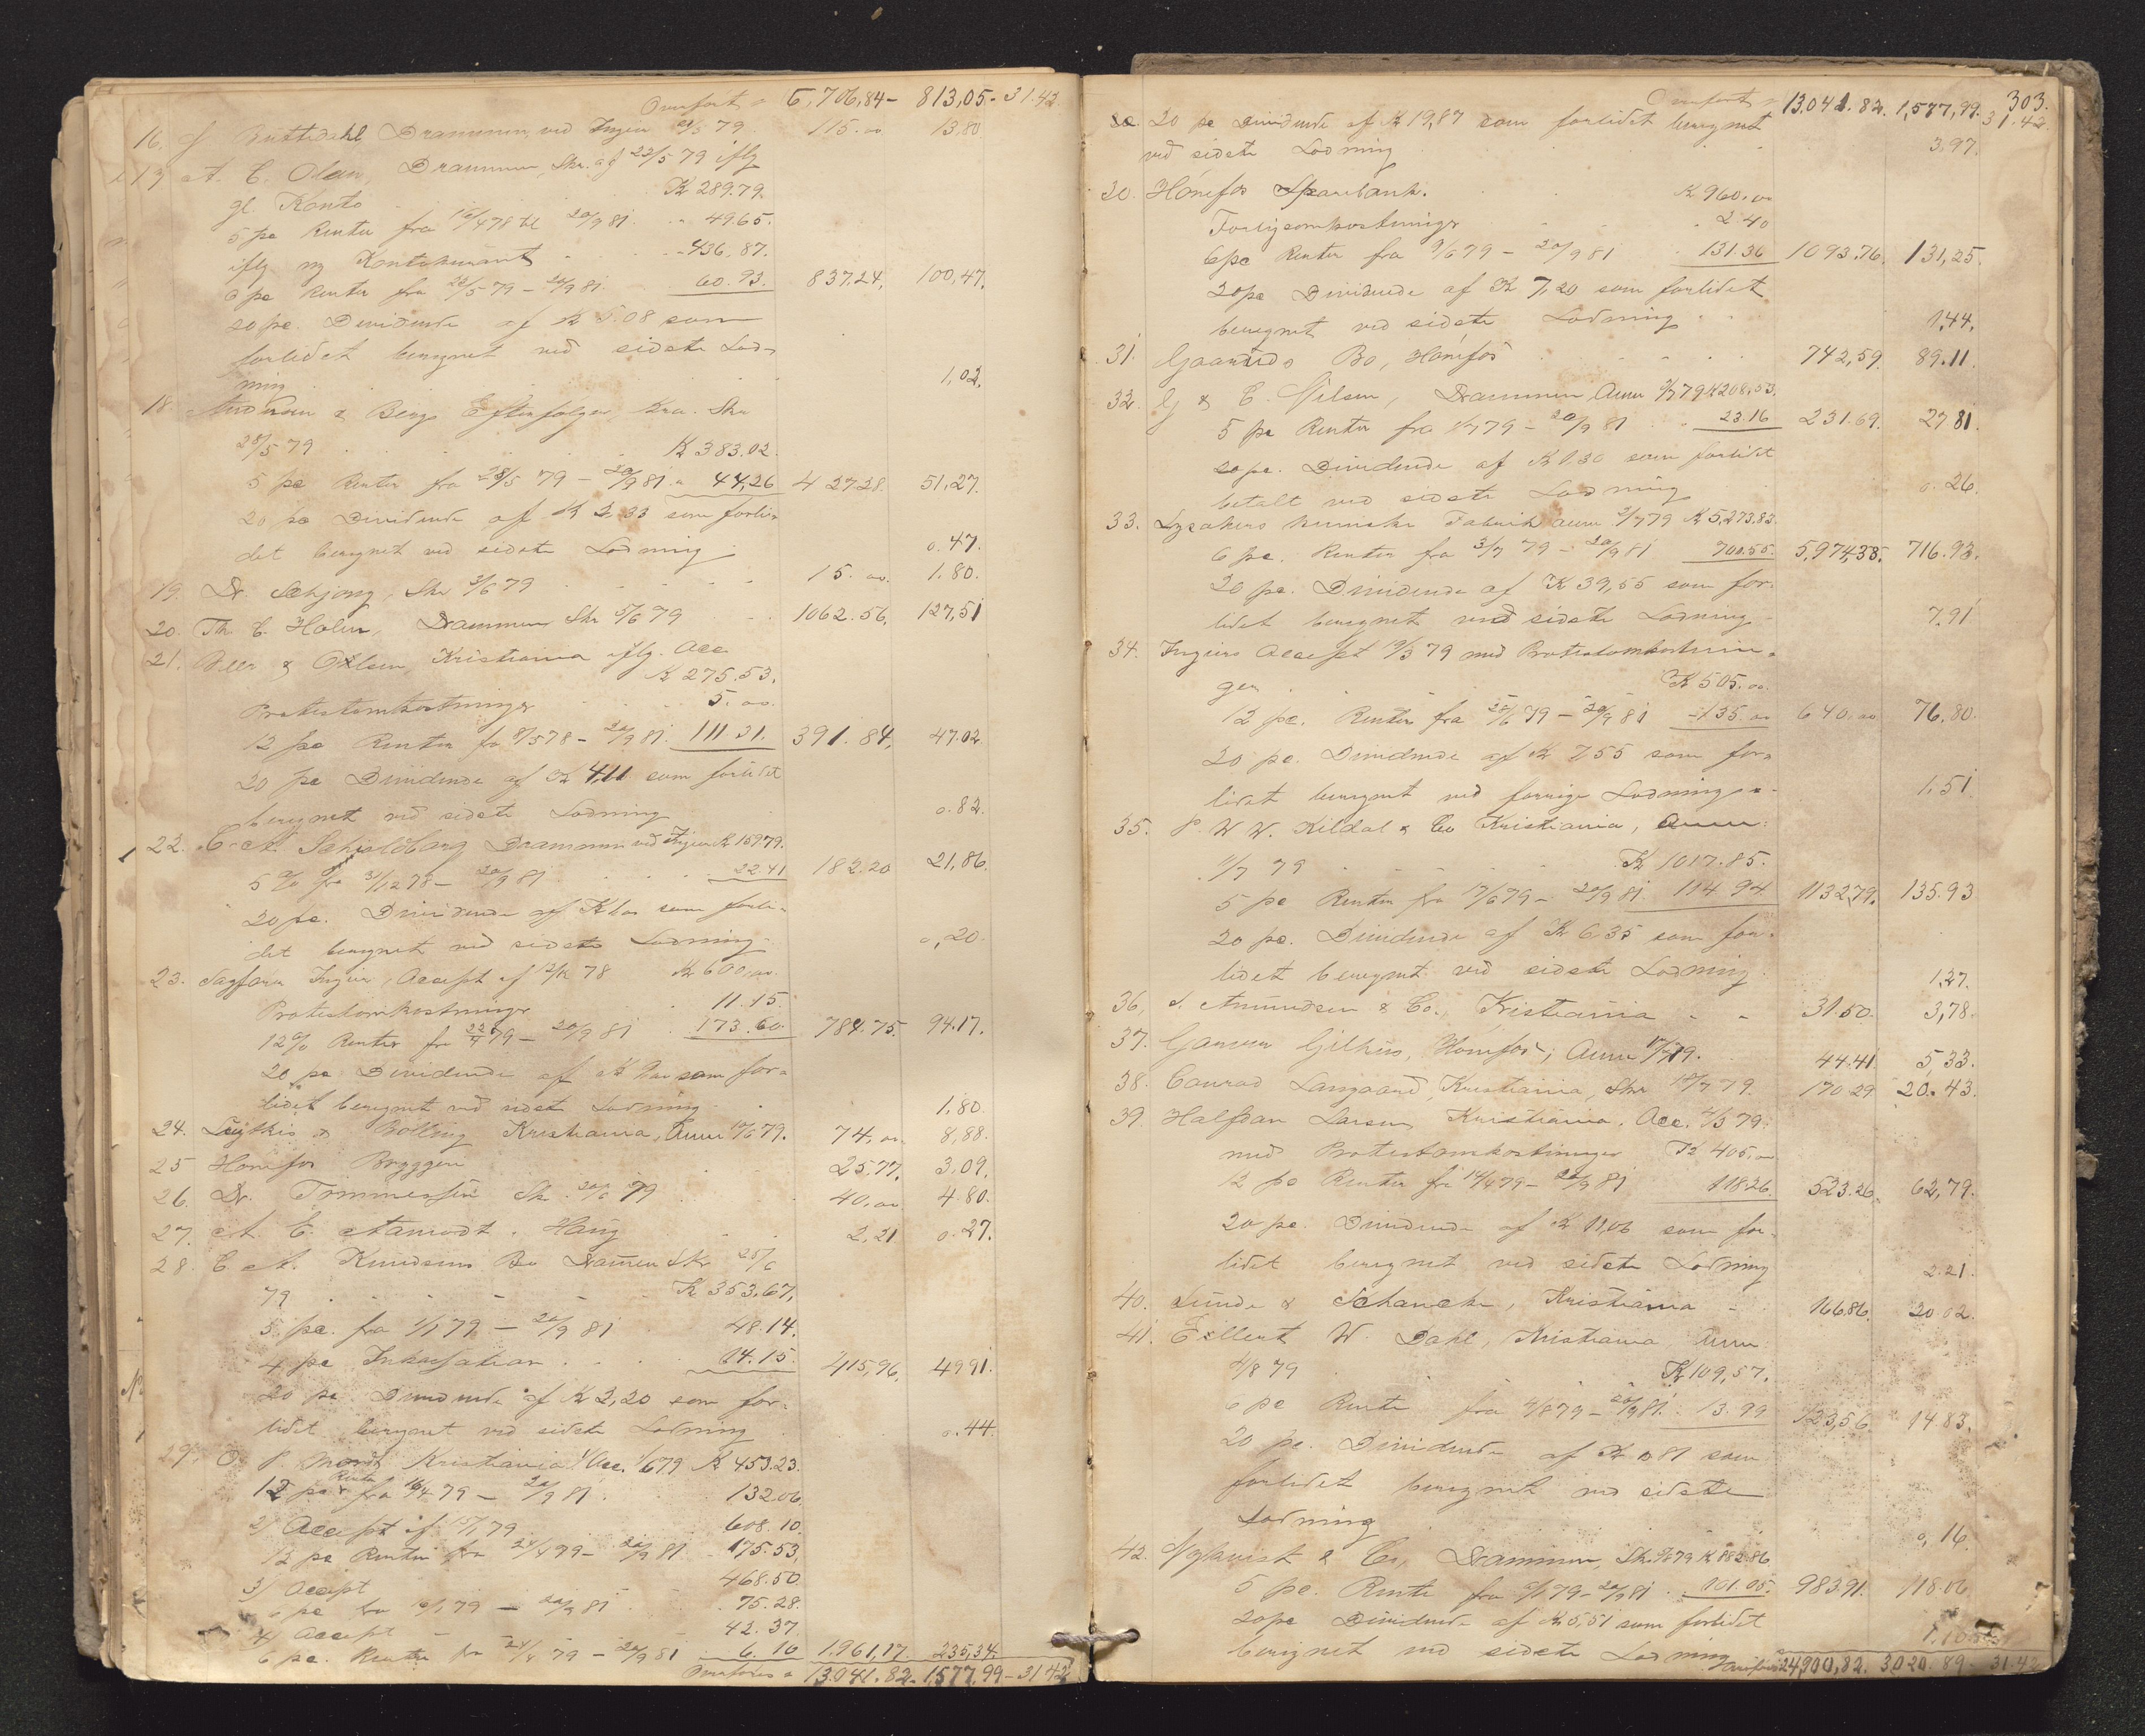 Overført " 6,706,84 - 813,05 - 31.42
16. Drammen, ved Ingier 79 115.00 13.80
17 A. C. Olsen, Drammen, Skr. af 23/5 79 iflg
gl. Konto K 289.79.
5 pc Renter fra til 20/9 81 " 49.65.
iflg ny Kontokurant - 436,87.
6 pc Renter fra 23/5 79 - 20/9 81. 60.93. 837.24, 100,47.
20 pc. Dividende af K 5.08 som
forlidet beregnet ved sidste Lod-
ning 1,02.
18. Andersen & Bergs Efterfølger, Kra. Skr
28/5 79 K 383.02.
5 pc Renter fra 28/5 79 - 20/9 81 " 44,26 427.28. 51,27.
20 pc Dividende af K 2,33 som forli-
det beregnet ved sidste Lodning 0.47.
19. Dr. Schjong, Skr 3/6 79 15.00. 1.80.
20. Th. C. Holm, Drammen Skr 5/6 79 1062.56, 127,51
21. & Ohlsen, Kristiania iflg. Acc
K 275.53.
Protestomkostninger 5.00.
12 pc Renter fra 8/5 78 - 20/9 81. 111 31. 391.84, 47.02
20 pc Dividende af K 4,11 som forlidet
beregnet ved sidste Lodning 0.82.
22. C. A. Schioldborg Drammen ved Ingier K 159.79.
5 % fra 31/12 78 - 20/9 81 22.41 182.20 21,86.
20 pc. Dividende af K 1.00 som forli-
det beregnet ved sidste Lodning 0,20.
23. Sagfører Ingier, Accept af 12/12 78 K 600,00.
Protestomkostninger 11.15.
12 % Renter fra 79 - 20/9 81 173.60. 784.75. 94.17.
20 pc Dividende af K som for-
lidet beregnet ved sidste Lodning 1,80.
24. & Bolling Kristiania, Ann 79. 74,00. 8,88.
25 Hønefos Bryggeri 25,77, 3.09.
26. Dr. Tommessen Skr. 20/6 79 40,00 4.80.
27. A. C. Aamodt. Haug 2,21 0.27.
28. C. A. Knudsens Bo Drammen Skr 25/6
79 K 353,67,
5 pc. fra 1/1 79 - 20/9 81 48.14.
4 pc Inkassation 14.15. 415,96, 49 91.
20 pc Dividende af K 2,20 som for-
lidet beregnet ved sidste Lodning 0.44.
29. O. P. Kristiania 1) Acc. 79 K 453.23.
12 pc Renter fra 79 - 20/9 81. 132.06.
2) Accept af 15/1 79 608.10.
12 pc Renter fra 24/4 79 - 20/9 81 175.53,
3) Accept 468.50
6 pc fra 79 - 20/9 81 75.28.
4) Accept 42.37.
6 pc. Renter fra 79 - 20/9 81 6.10 1,961,17. 235,34.
Overføres " 13.041.82. 1,577,99 - 31 42
303.
Overført " 13,041.82. 1,577,99. 31.42.
20 pc Dividende af K 19,87 som forlidet beregnet
ved sidste Lodning 3.97.
30. Hønefos Sparebank. K 960.00
Forligsomkostninger " 2 40
6 pc Renter fra 79 - 20/9 81 131.36 1093.76. 131,25.
20 pc Dividende af K 7,20 som forlidet
beregnet ved sidste Lodning 1,44.
31. Gaaruds Bo, Hønefos 742,59. 89.11.
32. G & C. Nilsen, Drammen, Ann 79 K 208.53.
5 pc Renter fra 79 - 20/9 81 23.16 231.69. 27 81.
20 pc. Dividende af K 1.30 som forlidt
betalt ved sidste Lodning 0.26.
33. Lysakers kemiske Fabrik ann 3/7 79 K 5.273.83.
6 pc. Renter fra 3/7 79 - 20/9 81 700.55. 5,974,38. 716.93.
20 pc. Dividende af K 39,55 som for-
lidet beregnet ved sidste Lodning 7.91
34. Ingiers Accept 79 med Protestomkostnin-
ger K 505.00.
12 pc. Renter fra 79 - 20/9 81 - 135.00 640.00 76,80.
20 pc. Dividende af K 7,55 som for-
lidet beregnet ved forrige Lodning 1,51
35. P. W. W. Kildal & Co Kristiania, Ann
79 K 1017.85.
5 pc Renter fra 79 - 20/9 81. 114 94 1132,79. 135.93
20 pc. Dividende af K 6 35 som for-
lidet beregnet ved sidste Lodning 1,27.
36, Amundsen & Co. Kristiania 31.50. 3,78.
37. Gilhus, Hønefos, Ann 79. 44.41 5,33.
38. Conrad Langaard, Kristiania, Skr 79. 170 29 20.43.
39. Halfdan Larsen, Kristiania. Acc. 79.
med Protestomkostninger K 405.00
12 pc Renter fra 14/4 79 - 20/9 81 118.26. 523.26. 62,79.
20 pc. Dividende af K 11,06 som for-
lidet beregnet ved sidste Lodning 2.21.
40. Lunde & Schancke, Kristiania 166.86. 20 02.
41. Eilert W. Dahl, Kristiania Ann
4/8 79 K 109,57.
6 pc Rente fra 4/8 79 - 20/9 81. 13.99 123,56 14 83.
20 pc. Dividende af K 0 81 som
forlidet beregnet ved sidste
Lodning 0,16.
42. Nyquist & Co, Drammen, Skr. 79 K 882.86
5 pc. Rente fra 79 - 20/9 81. 101.05. 983.91. 118.06
20 pc Dividende af K 5,51 som forlidet
beregnet ved sidste Lodning 1,10
Overføres 24,900,82. 3.020.89 - 31.42